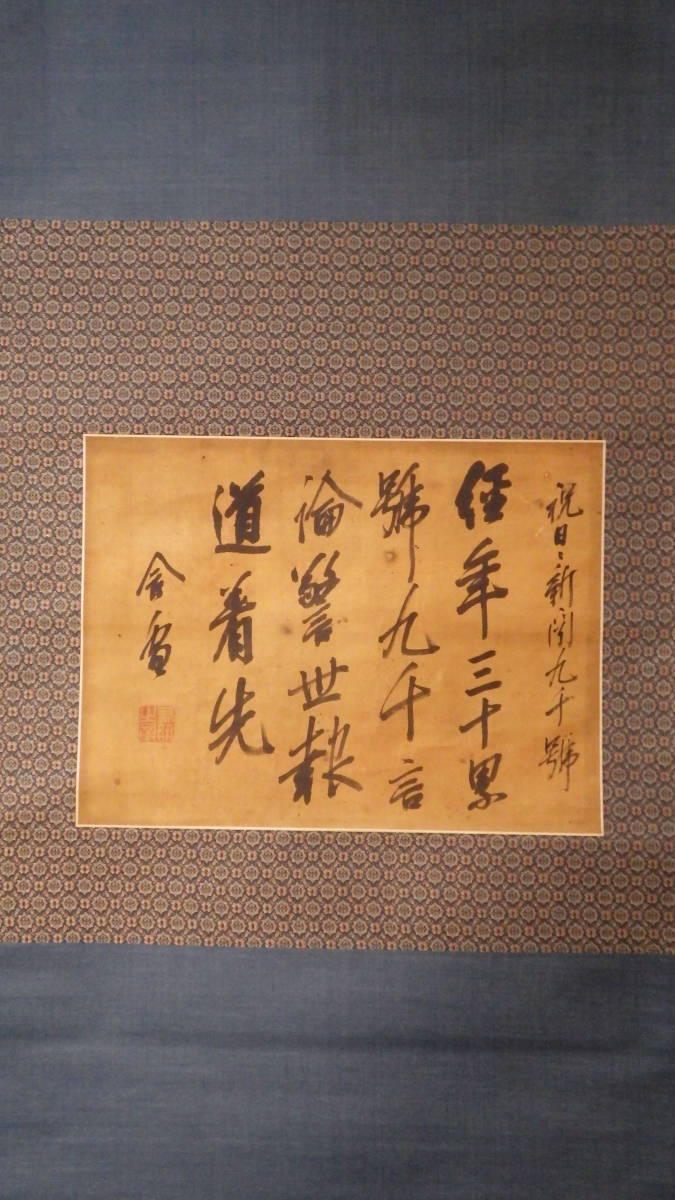 祝日々新聞九千號
経年三十累
號九千言
論警世報
道着先